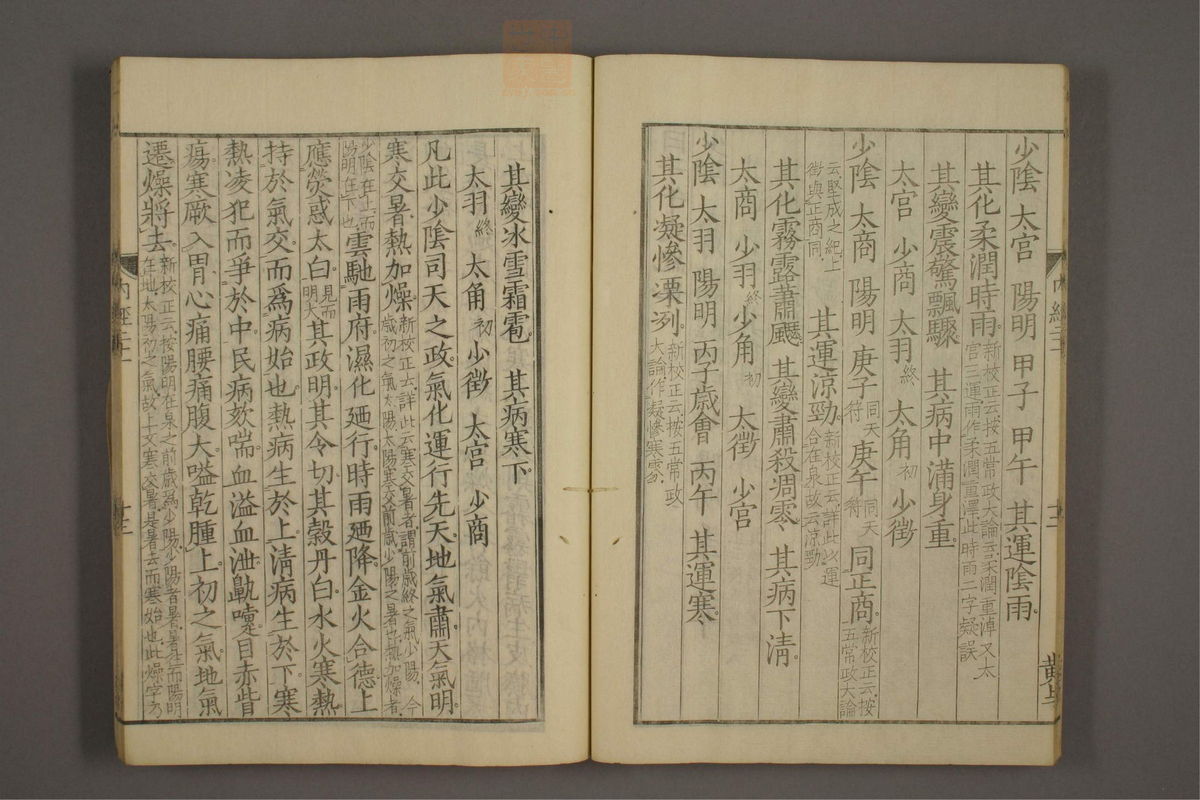 少陰 太宮 陽明 甲子 甲午 其運陰雨
其化柔潤時雨新校正云按五常政大論云柔潤重淖又太宮三運雨作柔潤重澤此時雨二字疑誤
其變震驚飄驟 其病中滿身重
太宮 少商 太羽終 太角初 少徵
少陰 太商 陽明 庚子同天符 庚午同天符 同正商新校正云按五常政大論
云堅成之紀上徵與正商同 其運涼勁新校正云詳此以運合在泉故云涼勁
其化霧露蕭飋 其變肅殺凋零 其病下清
太商 少羽終 少角初 太徵 少宮
少陰 太羽 陽明 丙子歲會 丙午 其運寒
其化凝慘凓冽新校正云按五常政大論作凝慘寒雰
內經二十一
十二
其變冰雪霜雹 其病寒下
太羽終 太角初 少徵 太宮 少商
凡此少陰司天之政氣化運行先天地氣肅天氣明
寒交暑熱加燥新校正云詳此云寒交暑者謂前歲終之氣少陽今歲初之氣太陽太陽寒交前歲少陽之暑也熱加燥者
少陰在上而陽明在下也雲馳雨府濕化廼行時雨廼降金火合德上
應熒惑太白見而明大其政明其令切其穀丹白水火寒熱
持於氣交而爲病始也熱病生於上清病生於下寒
熱凌犯而爭於中民病欬喘血溢血泄鼽嚏目赤眥
瘍寒厥入胃心痛腰痛腹大嗌乾腫上初之氣地氣
遷燥將去新校正云按陽明在泉之前歲爲少陽少陽者暑暑往而陽明在地太陽初之氣故上文寒交暑是暑去而寒始也此燥字乃
內經二十一
十三